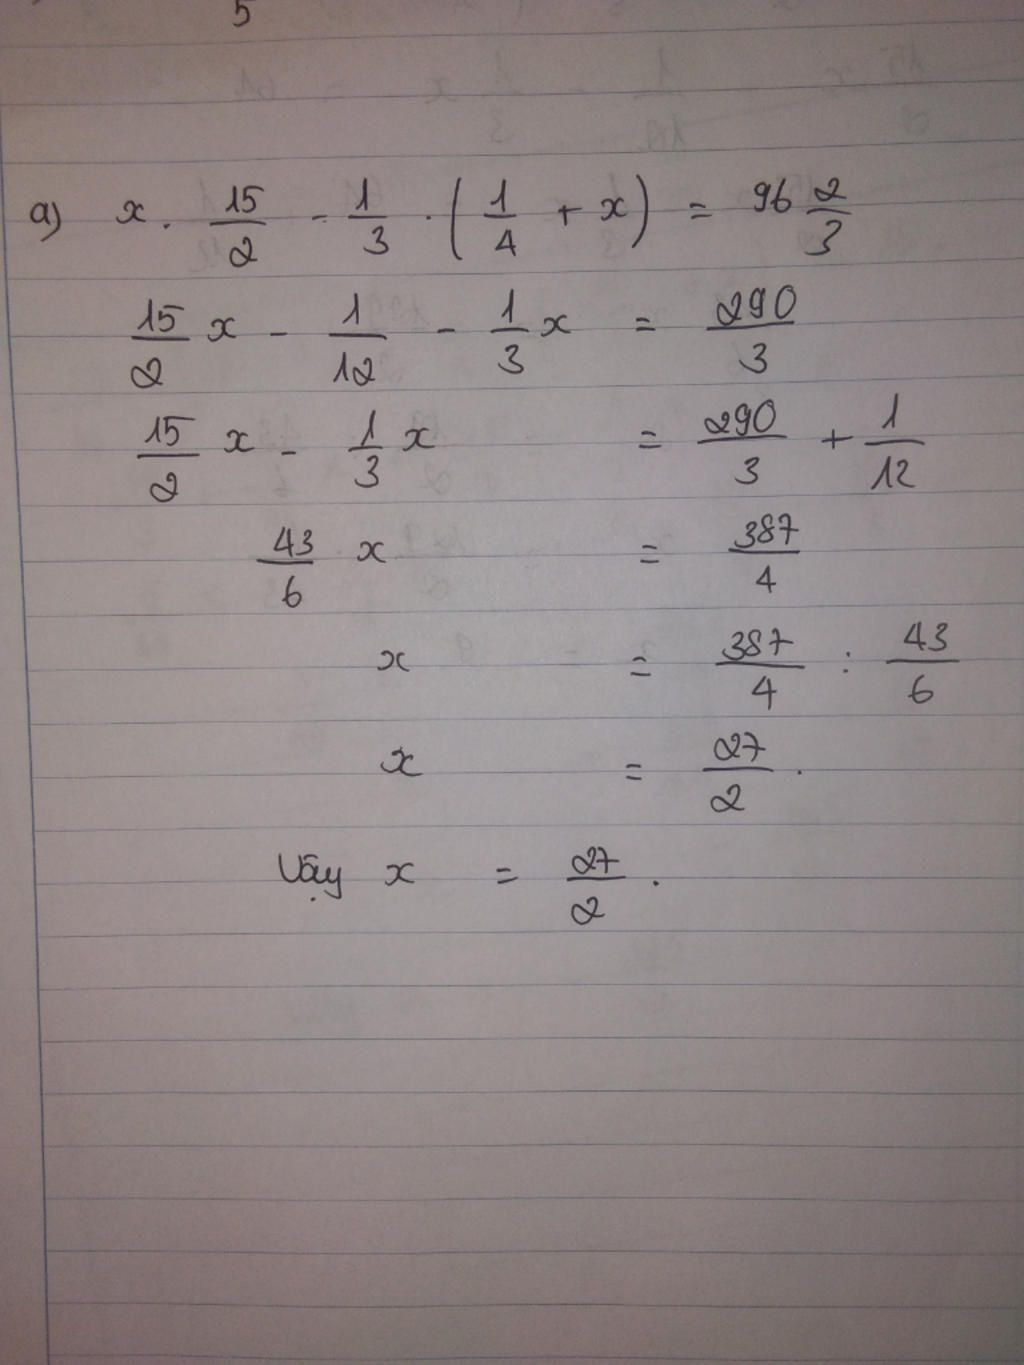 5
a) x . 15/2 - 1/3 . (1/4 + x) = 96 2/3
15/2 x - 1/12 - 1/3 x = 290/3
15/2 x - 1/3 x = 290/3 + 1/12
43/6 x = 387/4
x = 387/4 : 43/6
x = 27/2 .
Vậy x = 27/2 .